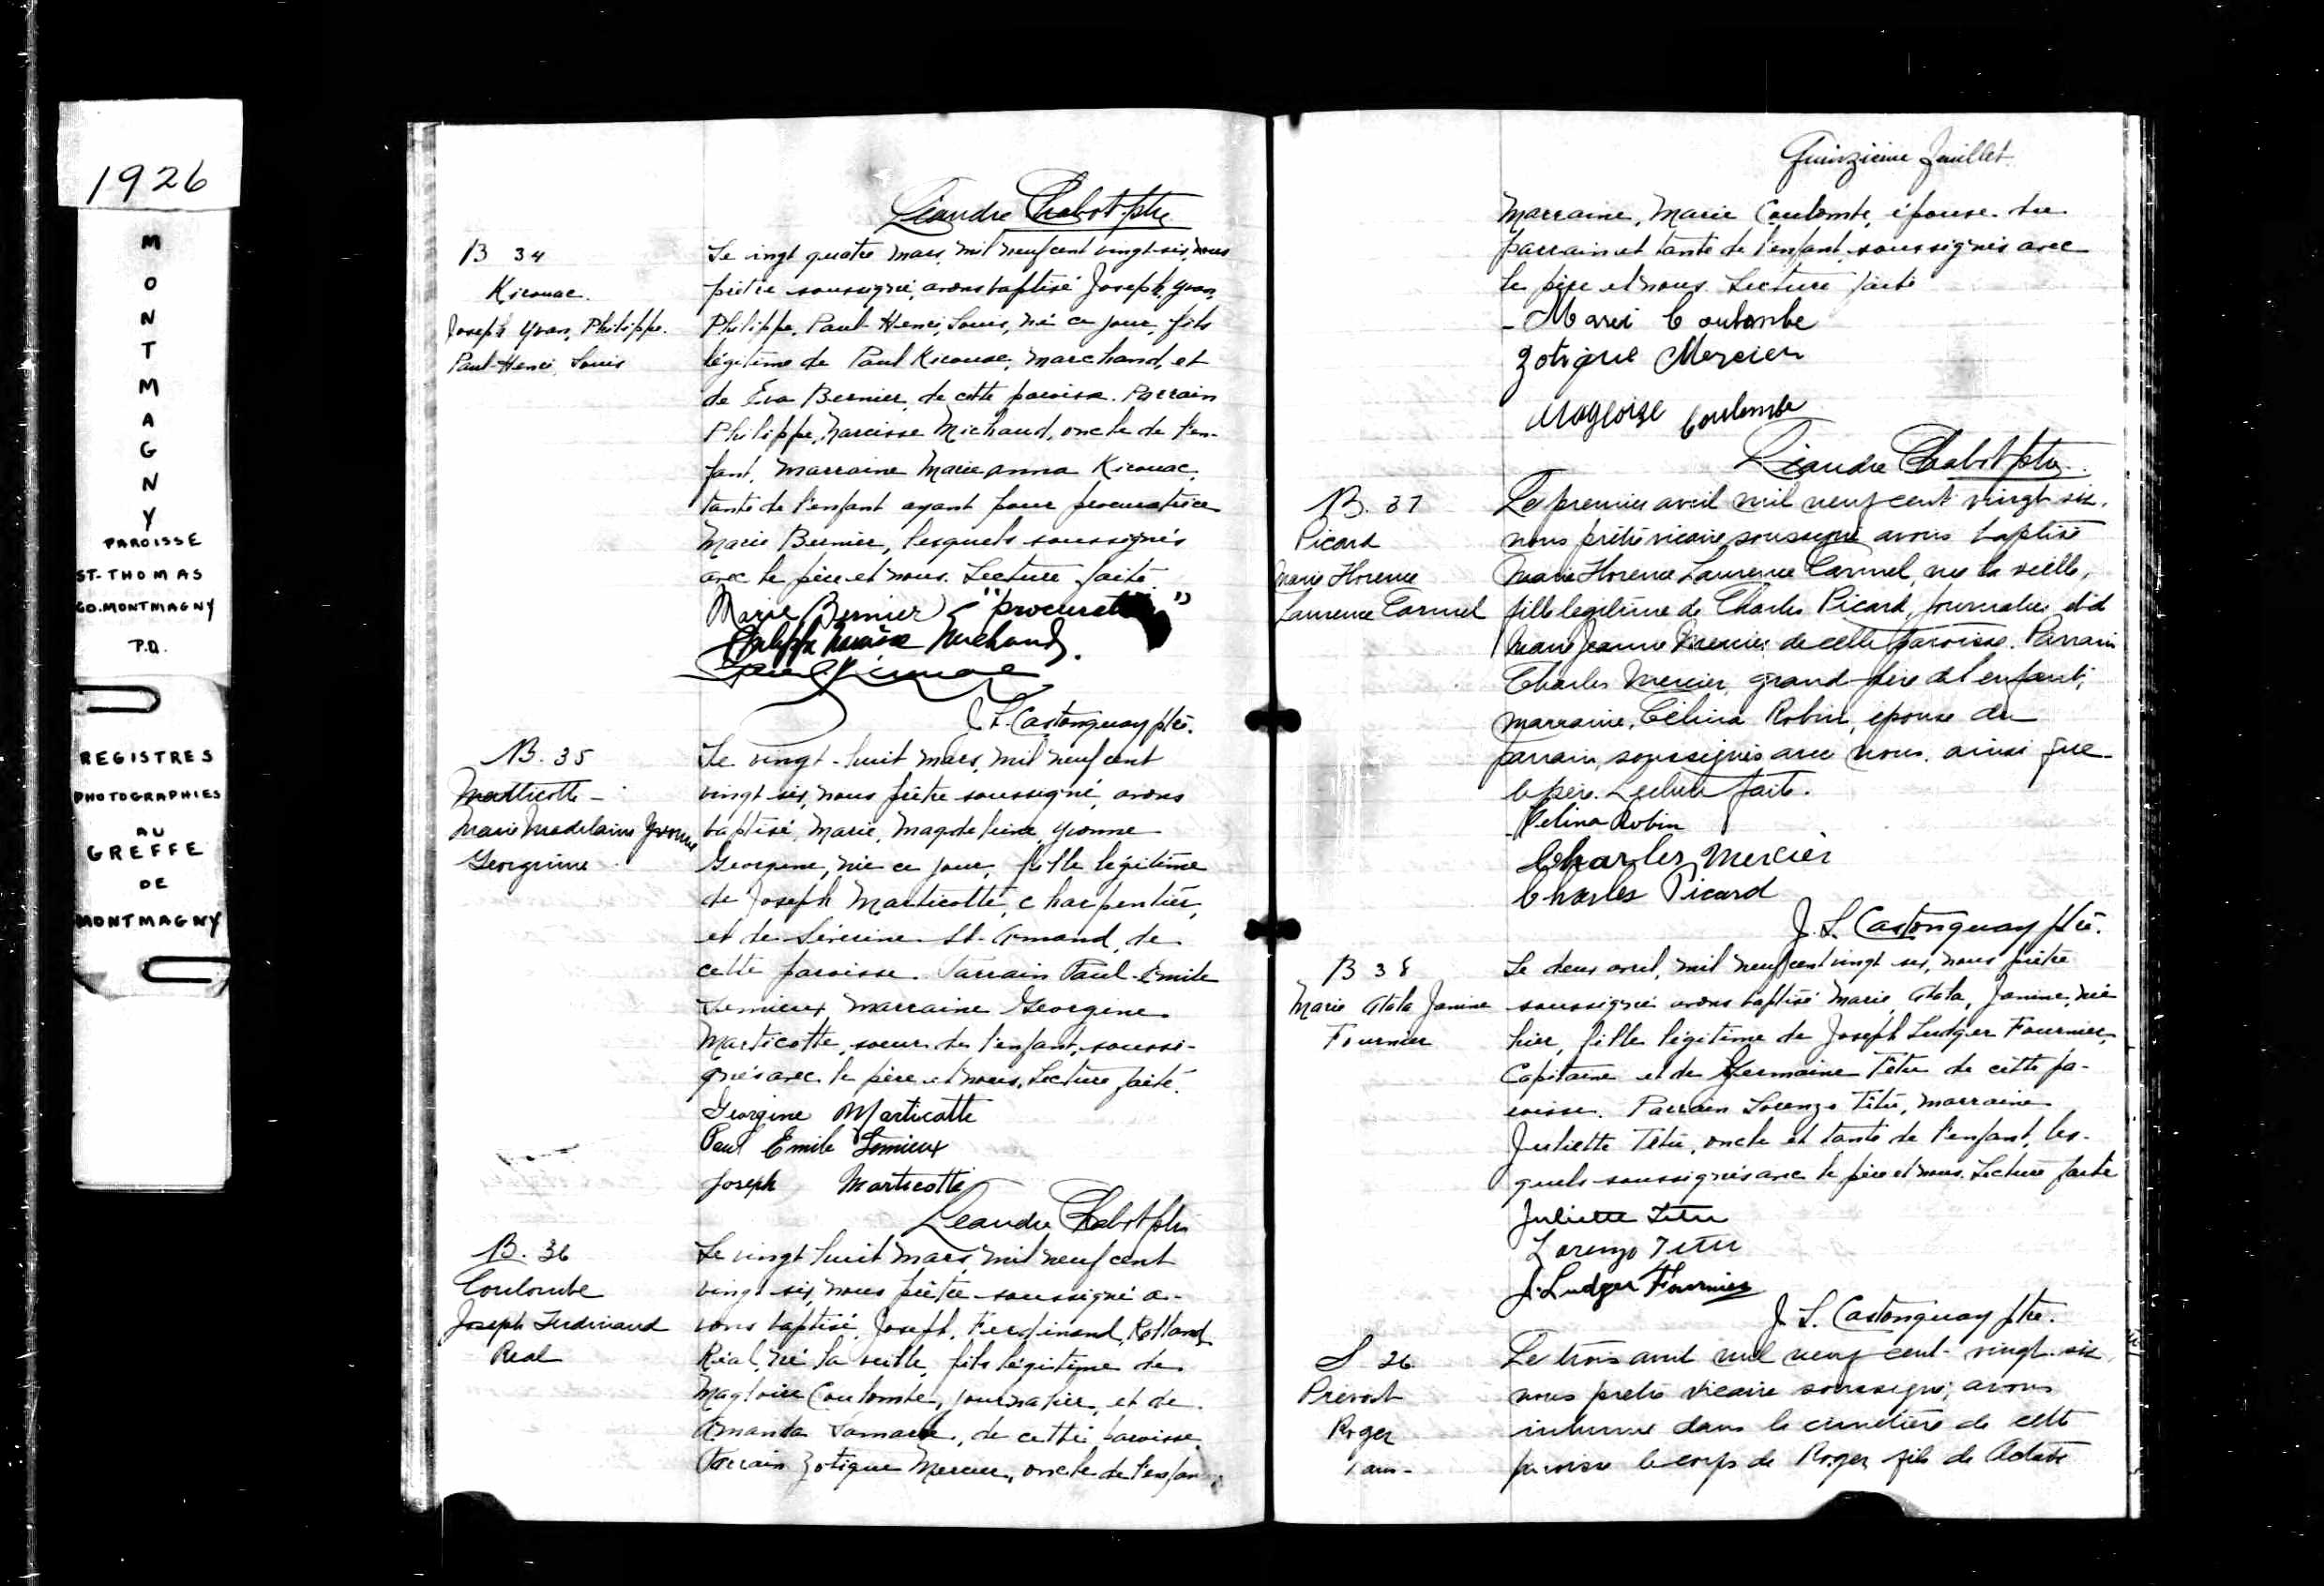 1926
MONTMAGNY
PAROISSE
ST-THOMAS
CO. MONTMAGNY
P.Q.
REGISTRES
PHOTOGRAPHIES
AU
GREFFE
DE
MONTMAGNY
Léandre Chabot ptre
B 34
Kirouac.
Joseph Yvan, Philippe.
Paul-Henri, Louis
Le vingt quatre mars, mil neuf cent vingt-six, nous
prêtre soussigné, avons baptisé Joseph, Yvan,
Philippe, Paul-Henri, Louis, né ce jour, fils
légitime de Paul Kirouac, marchand, et
de Eva Bernier, de cette paroisse. Parrain
Philippe, Narcisse Michaud, oncle de l'en-
fant, marraine Marie anna Kirouac,
tante de l'enfant ayant pour procuratrice
Marie Bernier, lesquels soussignés
avec le père et nous. Lecture faite.
Marie Bernier "procurat
Philippe Narcisse Michaud.
Paul Kirouac
J. L. Castonguay ptre.
B. 35
Marticotte -
Marie Madelaine Yvonne
Georgine
Le vingt-huit mars, mil neuf cent
vingt six, nous prêtre soussigné, avons
baptisé, Marie, Magdeleine, Yvonne
Georgine, née ce jour, fille légitime
de Joseph Marticotte, charpentier,
et de Séverine St-Amand, de
cette paroisse. Parrain Paul-Emile
Lemieux, marraine Georgine
Marticotte, soeur de l'enfant, soussi-
gnés avec le père et nous. Lecture faite.
Georgine Marticotte
Paul Emile Lemieux
Joseph Marticotte
Léandre Chabot ptre
B. 36
Coulombe
Joseph Ferdinand
Réal
Le vingt huit mars, mil neuf cent
vingt six, nous prêtre soussigné a-
vons baptisé, Joseph, Ferdinand, Rolland
Réal, né la veille, fils légitime de
Magloire Coulombe, journalier, et de
Amanda Lamarre, de cette paroisse.
Parrain Zotique Mercier, oncle de l'enfan
Quinzième Feuillet.
Marraine, Marie Coulombe, épouse du
parrain et tante de l'enfant soussignés avec
le père et nous. Lecture faite
- Marie Coulombe
Zotique Mercier
Magloire Coulombe
Léandre Chabot ptre.
B. 37
Picard
Marie Florence
Laurence Carmel
Le premier avril mil neuf cent vingt six,
nous prêtre vicaire soussigné avons baptisé
Marie Florence Laurence Carmel, née la veille,
fille légitime de Charles Picard, journalier et de
Marie Jeanne Mercier de cette paroisse. Parrain
Charles Mercier, grand-père de l'enfant;
marraine, Célina Robin, épouse du
parrain, soussignés avec nous. ainsi que
le père. Lecture faite.
Célina Robin
Charles Mercier
Charles Picard
J. L. Castonguay ptre.
B 38
Marie Atala Janine
Fournier
Le deux avril, mil neuf cent vingt six, nous prêtre
soussigné avons baptisé Marie, Atala, Janine, née
hier, fille légitime de Joseph Ludger Fournier,
Capitaine et de Germaine Têtu de cette pa-
roisse. Parrain Lorenzo Têtu, marraine
Juliette Têtu, oncle et tante de l'enfant, les-
quels soussignés avec le père et nous. Lecture faite
Juliette Têtu
Lorenzo Têtu
J. Ludger Fournier
J. L. Castonguay ptre.
S 26
Prévost
Roger
1 ans-
Le trois avril mil neuf cent vingt six,
nous prêtre vicaire soussigné, avons
inhumé dans le cimetière de cette
paroisse le corps de Roger fils de